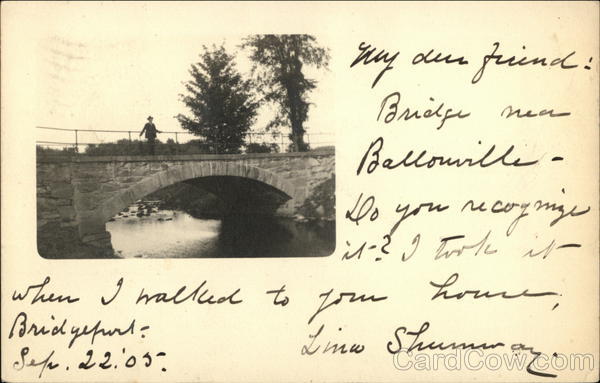 My dear friend:
Bridge near
Ballouville -
Do you recognize
it? I took it
when I walked to your house,
Bridgeport -
Sep. 22. '05.
Lina Shumway.
CardCow.com